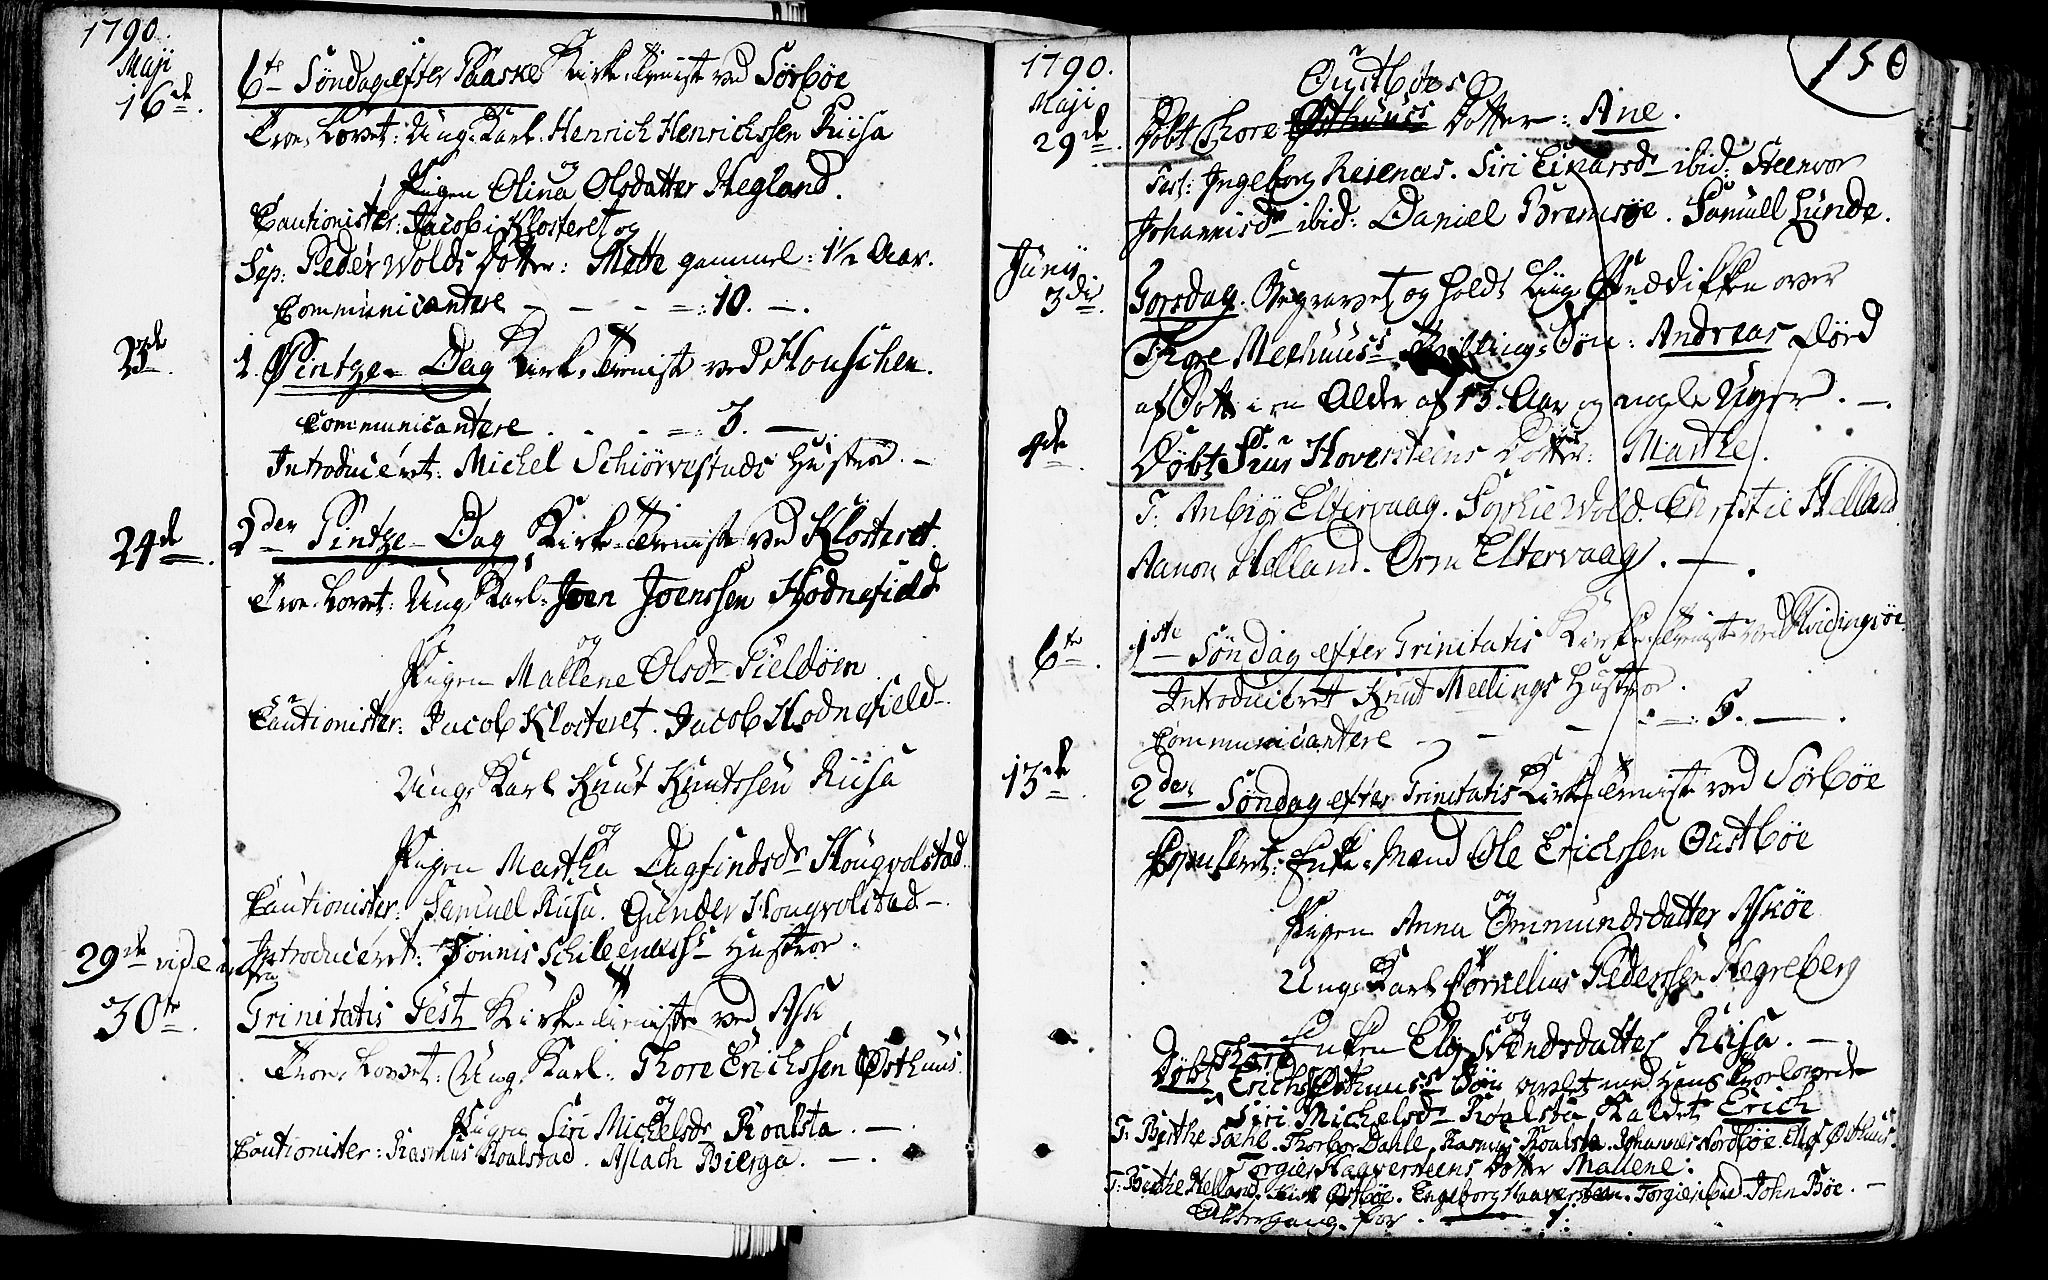 1790.
Maji
16de. 6te Søndag efter Paaske Kirke-Tieniste ved Sørbøe
Troe-Lovet: Ung-Karl Henrich Henrichssen Riisa
og
Pigen Olina Olsdatter Hegland.
Cautionister: Jacob i Klosteret og
Sep: Peder Wolds Dotter: Mette gammel: 1 1/2 Aar.
Communicantere - - - =: 10. -.
23de. 1. Pintze-Dag Kirke-Tieniste ved Houschen.
Communicantere . - - =: 3. -
Introduceret: Michel Schiørvestads Hustroe. -
24de. 2den Pintze-Dag Kirke-Tieniste ved Klosteret.
Troe-Lovet: Ung-Karl: Joen Joenssen Hodnefield
og
Pigen Mallene Olsdr Fieldøen
Cautionister: Jacob Klosteret. Jacob Hodnefield-.
Ung-Karl Knut Knutssen Riisa
og
Pigen Martha Dagfindsdr Hougvolstad.
Cautionister: Samuel Riisa. Gunder Hougvolstad-.
29de vide infra Introduceret: Tønnis Schileenæss Hustroe.
30te. Trinitatis Fest Kirke-Tieniste ved Ask
Troe-Lovet: Ung-Karl: Thore Erichssen Østhuus
og
Pigen Siri Michelsdr Roalsta. -.
Cautionister: Rasmus Roalstad. Aslach Bierga. -.
150
1790.
Maji
Oustbøes
29de. Døbt Thore Østhuuss Dotter: Ane.
Test: Ingeborg Reienæs. Siri Einarsdr ibid: Steenvor
Johannisdr ibid: Daniel Bremsøe. Samuel Lunde.
Junij
3die. Torsdag. Begravet og holdt Liig-Prædiken over
Thore Meehuuss Søn: Andreas Død
af i en Alder af 13. Aar og nogle Uger. -.
4de. Døbt Siur Hoversteens Dotter: Marthe.
T: Anbiør Eltervaag. Sophie Wold. Christie Helland.
Aanon Helland. Orm Eltervaag. -.
6te. 1ste Søndag efter Trinitatis Kirke-Tieniste ved Hvidingsøe.
Introduceret Knut Meelings Hustroe.
Communicantere - - - : -: 5. -.
13de. 2den Søndag efter Trinitatis Kirke-Tieniste ved Sørbøe
Copuleret: Enke-Mand Ole Erichssen Oustbøe
og
Pigen Anna Ommundsdatter Askøe
Ung-Karl Cornelius Pederssen Hegreberg
og
Enken Elij Svendsdatter Riisa. -
Thore
Døbt Erichs Østhuuss Søn avlet med Hans Troelovede
Siri Michelsdr Roalsta kaldet Erich
T: Berthe Sæhl. Thorbor Dahle. Rasmus Roalsta. Johannes Nordbøe. Elias Østhuus.
Torgier Haaversteens Dotter Mallene:
T: Berthe Helland. Siri Østbøe. Engeborg Haaversteen. Torgier ibid John Bøe. -
Altergang. for . - 7.